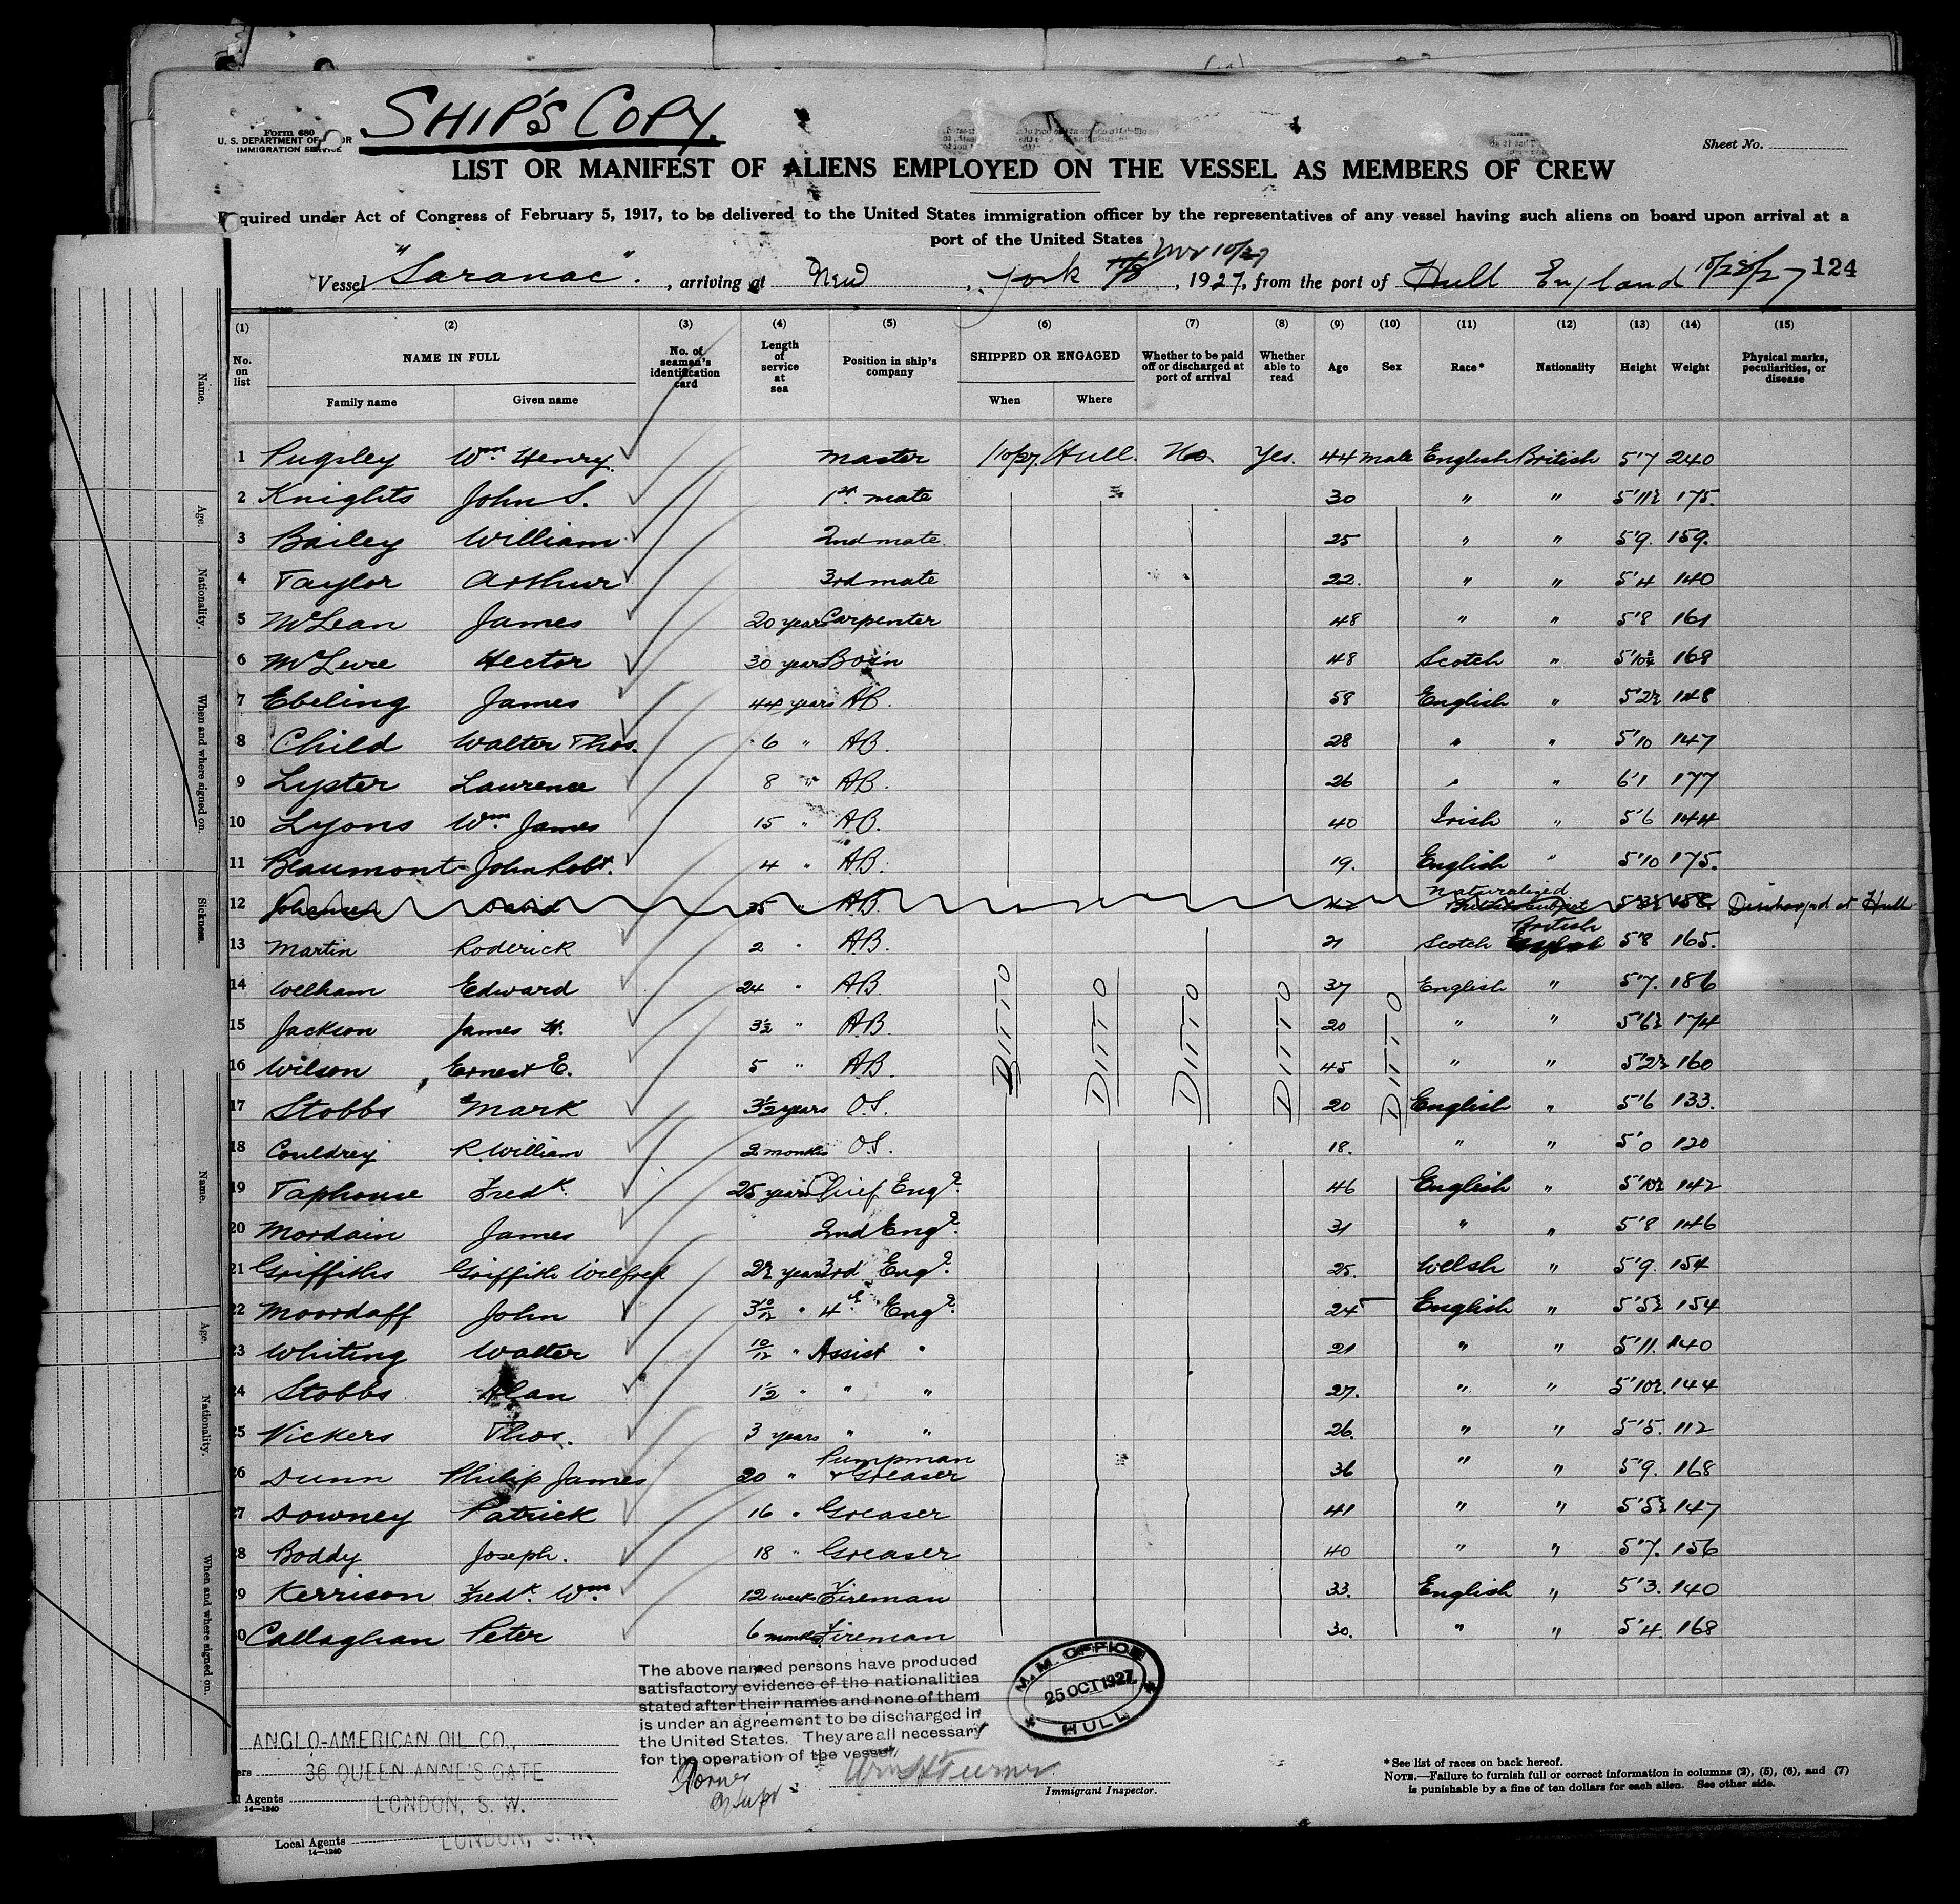 SHIP'S COPY.
Form 680
U. S. DEPARTMENT OF OR
IMMIGRATION SERVICE
Sheet No.
LIST OR MANIFEST OF ALIENS EMPLOYED ON THE VESSEL AS MEMBERS OF CREW
quired under Act of Congress of February 5, 1917, to be delivered to the United States immigration officer by the representatives of any vessel having such aliens on board upon arrival at a
port of the United States
Nov 10/27
Vessel "Saranac". , arriving at New , York , 1927, from the port of Hull England 10/28/27 124
(1) (2) (3) (4) (5) (6) (7) (8) (9) (10) (11) (12) (13) (14) (15)
No. on list NAME IN FULL No. of seaman's identification card Length of service at sea Position in ship's company SHIPPED OR ENGAGED Whether to be paid off or discharged at port of arrival Whether able to read Age Sex Race* Nationality Height Weight Physical marks, peculiarities, or disease
Family name Given name When Where
1 Pugsley Wm. Henry. master 10/27. Hull. No. Yes. 44 male English British 5'7 240
2 Knights John S. 1st. mate 30 " " 5'11½ 175.
3 Bailey William 2nd mate 25 " " 5'9. 159.
4 Taylor Arthur 3rd mate 22. " " 5'4 140
5 McLean James 20 years Carpenter 48 " " 5'8 161
6 McLure Hector 30 years Bos'n 48 Scotch " 5'10¾ 168
7 Ebeling James 44 years AB. 58 English " 5'2½ 148
8 Child Walter Thos. 6 " AB. 28 " " 5'10 147
9 Lyster Laurence 8 " AB. 26 " " 6'1 177
10 Lyons Wm. James 15 " AB. 40 Irish " 5'6 144
11 Beaumont John Robt. 4 " AB. 19. English " 5'10 175.
12 Johansen David 35 AB. Naturalized British subject 5'3½ 158. Discharged at Hull
13 Martin Roderick 2 " AB. 21 Scotch British English 5'8 165.
14 Welham Edward 24 " AB. 37 English " 5'7. 186
15 Jackson James H. 3½ " AB. 20 " " 5'6½ 174
16 Wilson Ernest E. 5 " AB. 45 " " 5'2½ 160
DITTO DITTO DITTO DITTO DITTO
17 Stobbs Mark 3½ years O.S. 20 English " 5'6 133.
18 Couldrey R. William 2 months O.S. 18. " " 5'0 120
19 Taphouse Fredk. 25 years Chief Engr. 46 English " 5'10½ 142
20 Mordain James 2nd Engr. 31 " " 5'8 146
21 Griffiths Griffith Wilfred 2½ years 3rd Engr. 25. Welsh " 5'9. 154
22 Moordaff John 3 10/12 " 4th Engr. 24 English " 5'5½ 154
23 Whiting Walter 10/12 " Assist " 21 " " 5'11. 140
24 Stobbs Alan 1½ " " " 27. " " 5'10½. 144
25 Vickers Thos. 3 years " " 26. " " 5'5. 112
26 Dunn Philip James 20 " Pumpman & Greaser 36 " " 5'9. 168
27 Downey Patrick 16 " Greaser 41 " " 5'5½ 147
28 Boddy Joseph. 18 " Greaser 40 " " 5'7. 156
29 Kerrison Fredk. Wm. 12 weeks Fireman 33. English " 5'3. 140
30 Callaghan Peter 6 months Fireman 30. " " 5'4. 168
The above named persons have produced
satisfactory evidence of the nationalities
stated after their names and none of them
is under an agreement to be discharged in
the United States. They are all necessary
for the operation of the vessel.
M. M. OFFICE
25 OCT 1927
HULL
ANGLO-AMERICAN OIL CO.,
ers 36 QUEEN ANNE'S GATE
l Agents LONDON, S. W.
14—1240
Immigrant Inspector.
*See list of races on back hereof.
NOTE.—Failure to furnish full or correct information in columns (2), (5), (6), and (7)
is punishable by a fine of ten dollars for each alien. See other side.
Local Agents LONDON, S. W.
14—1240
Name.
Age.
Nationality.
When and where signed on.
Sickness.
Name.
Age.
Nationality.
When and where signed on.